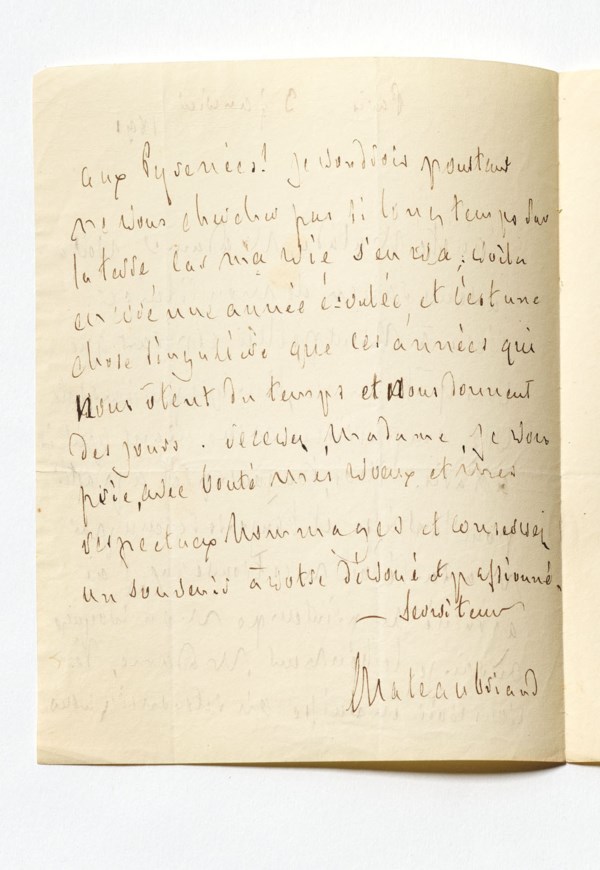 aux Pyrenées! je voudrois pourtant
ne vous chercher pas si longtemps sur
la terre car ma vie s'en va; voila
encore une année écoulée, et c'est une
chose singulière que ces années qui
nous ôtent du temps et nous donnent
des jours. recevez, Madame, je vous
prie, avec bonté mes vœux et mes
respectueux hommages et conservez
un souvenir à votre dévoué et passionné
— serviteur
Chateaubriand